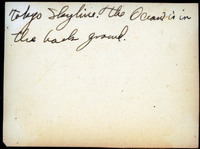 Tokyo Skyline. The Ocean is in
the back ground.